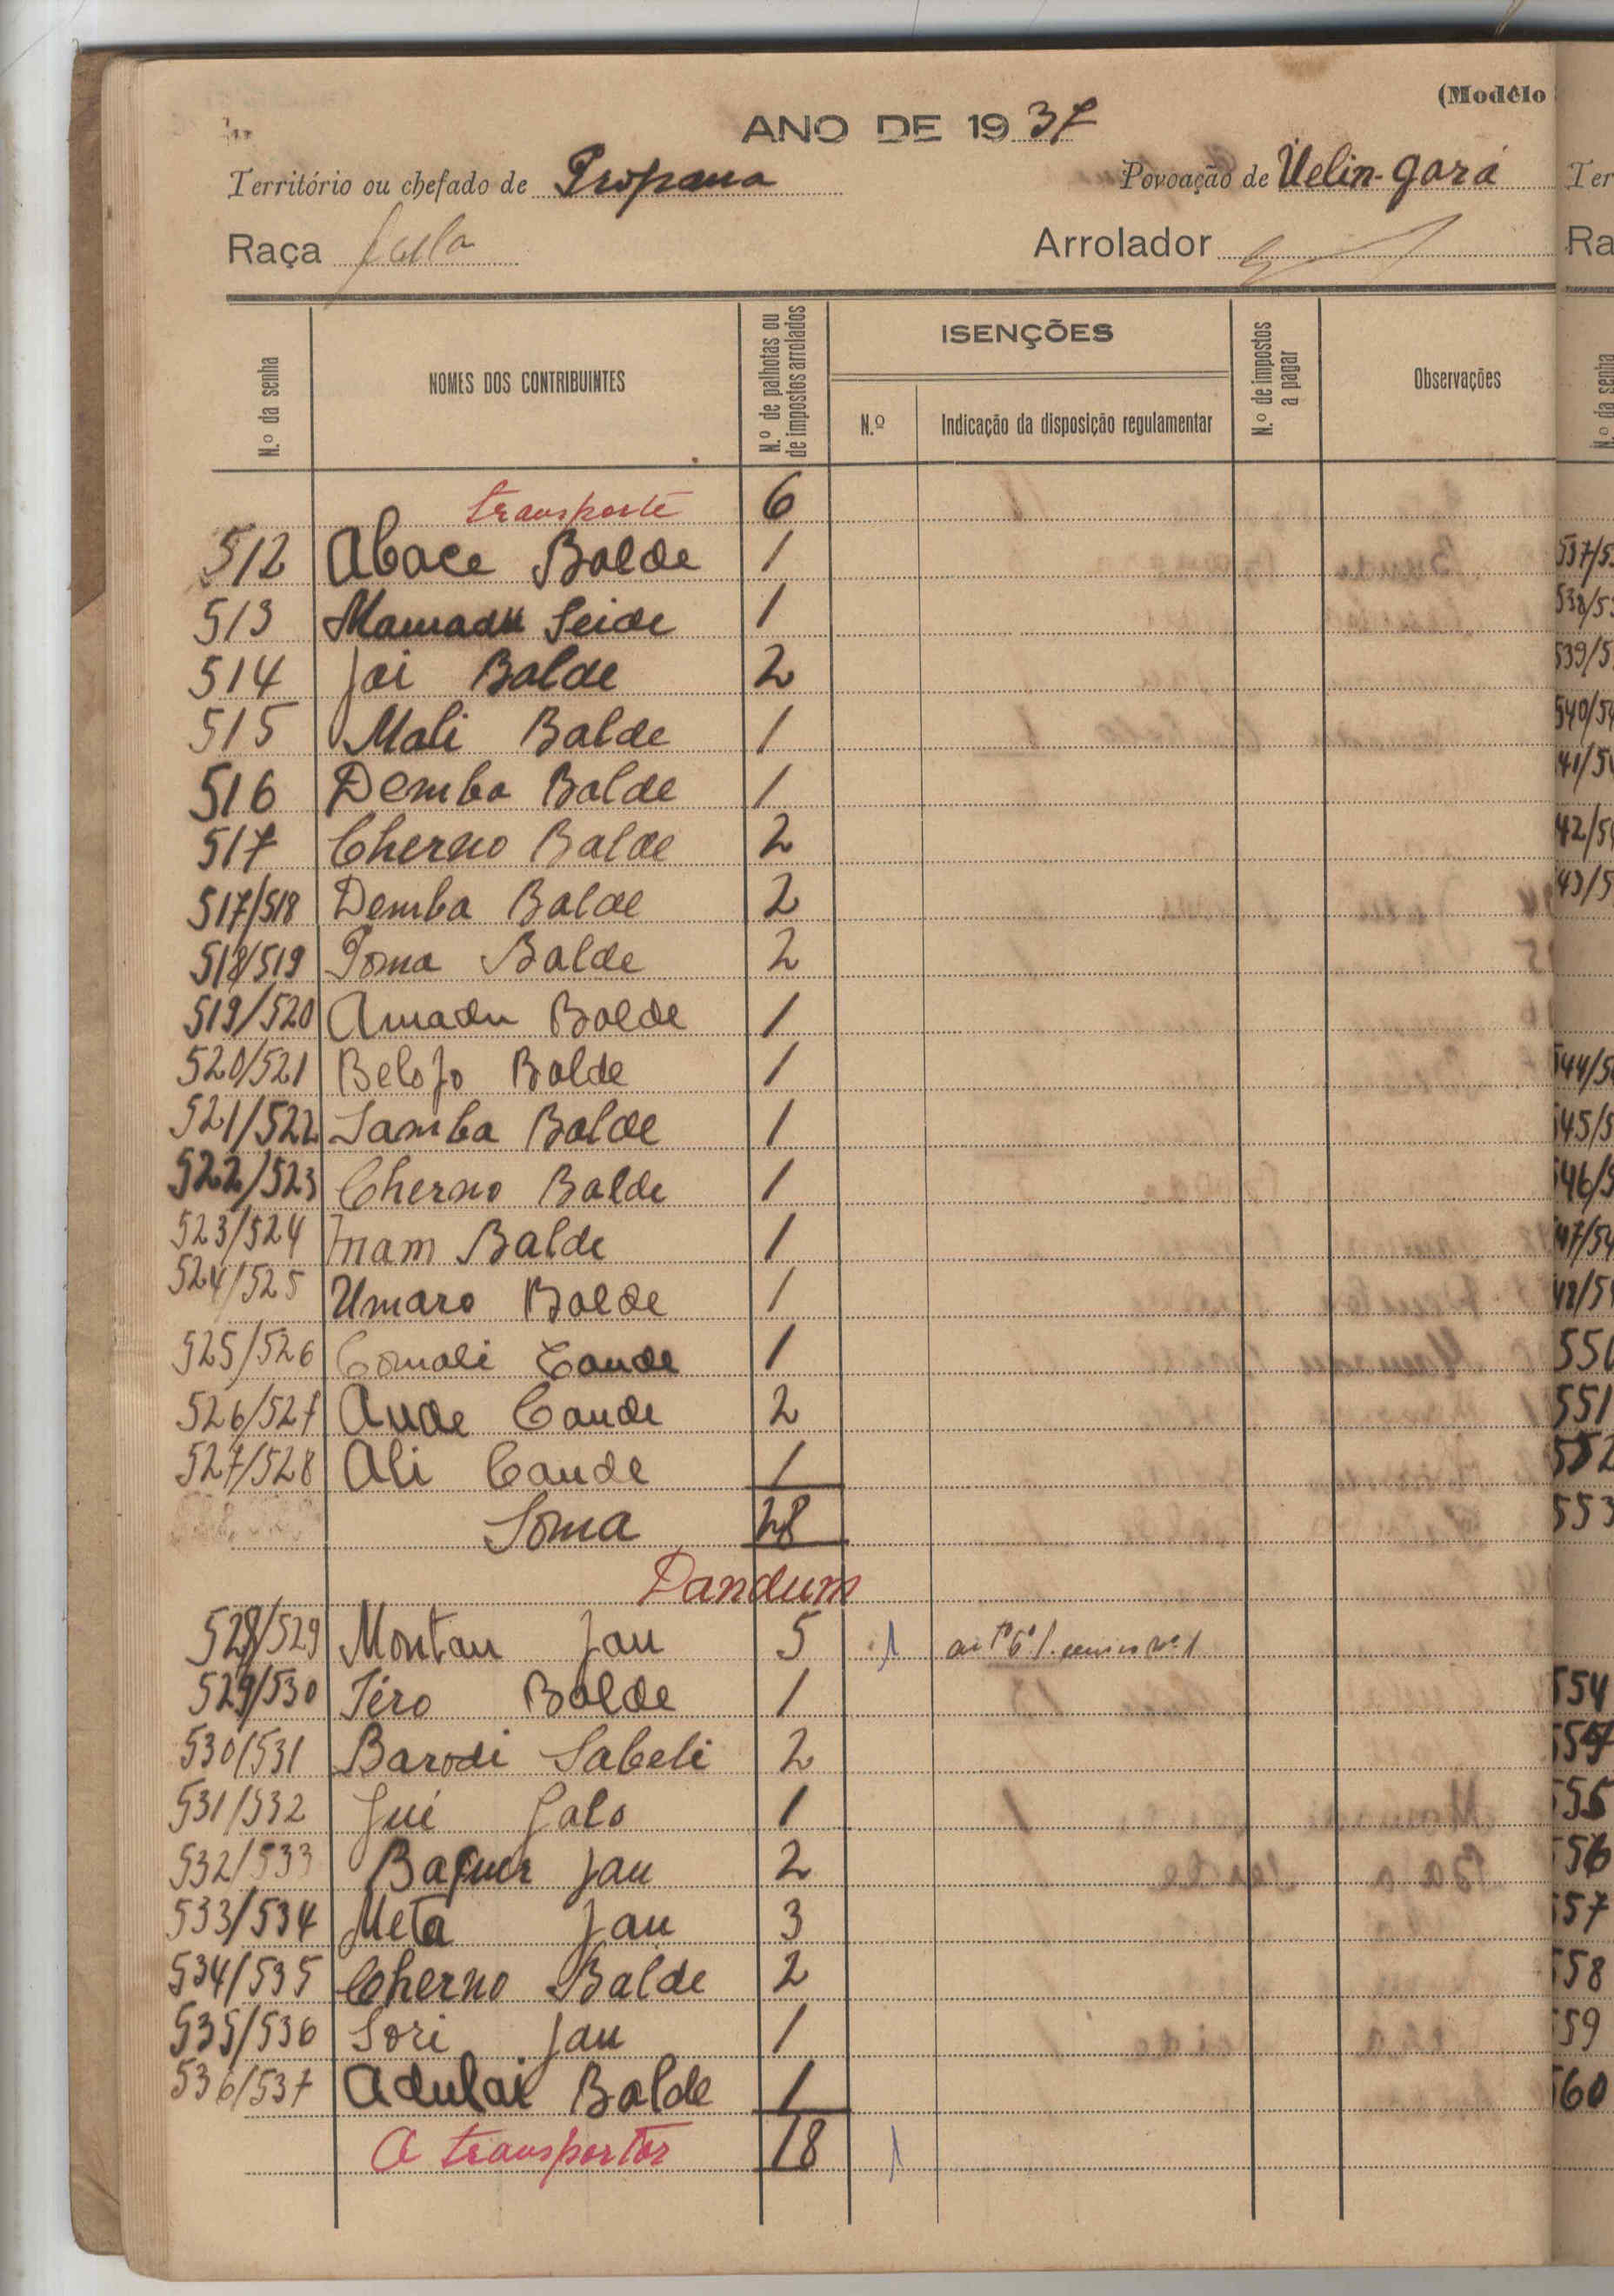 (Modêlo
ANO DE 1937
Território ou chefado de Propana Povoação de Uelin-gará
Raça fula Arrolador
N.º da senha NOMES DOS CONTRIBUINTES N.º de palhotas ou de impostos arrolados ISENÇÕES N.º Indicação da disposição regulamentar N.º de impostos a pagar Observações
transporte 6
512 Abace Balde 1
513 Mamadu Seide 1
514 Jai Balde 2
515 Mali Balde 1
516 Demba Balde 1
517 Cherno Balde 2
517/518 Demba Balde 2
518/519 Poma Balde 2
519/520 Amadu Balde 1
520/521 Belojo Balde 1
521/522 Samba Balde 1
522/523 Cherno Balde 1
523/524 Inam Balde 1
524/525 Umaro Balde 1
525/526 Comali Cande 1
526/527 Aude Cande 2
527/528 Ali Cande 1
Soma 28
Dandum
528/529 Montau Jau 5 1 artº 6º nº 1
529/530 Téro Balde 1
530/531 Barodi Sabeli 2
531/532 Jui Jalo 1
532/533 Jau 2
533/534 Meta Jau 3
534/535 Cherno Balde 2
535/536 Sori Jau 1
536/537 Adulai Balde 1
A transportar 18 1
Ter
Ra
N.º da senha
537/5
538/5
539/5
540/54
41/5
42/5
43/5
44/5
45/5
46/5
47/54
551
552
553
554
557
558
559
560